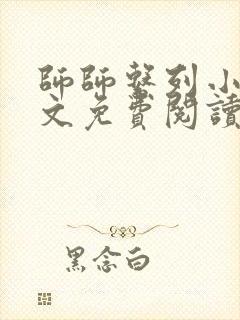 師師整列小
文免費閱讀
黑念白